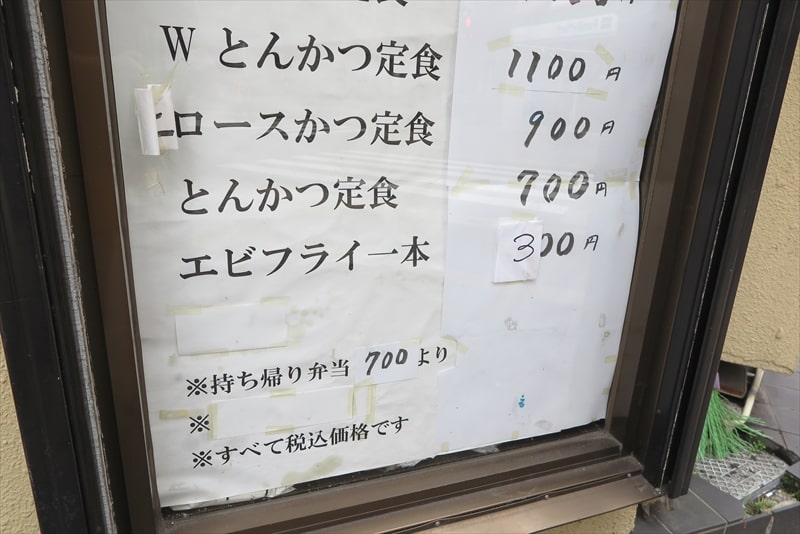 W とんかつ定食 1100円
ロースかつ定食 900円
とんかつ定食 700円
エビフライ一本 300円
※持ち帰り弁当 700より
※
※すべて税込価格です